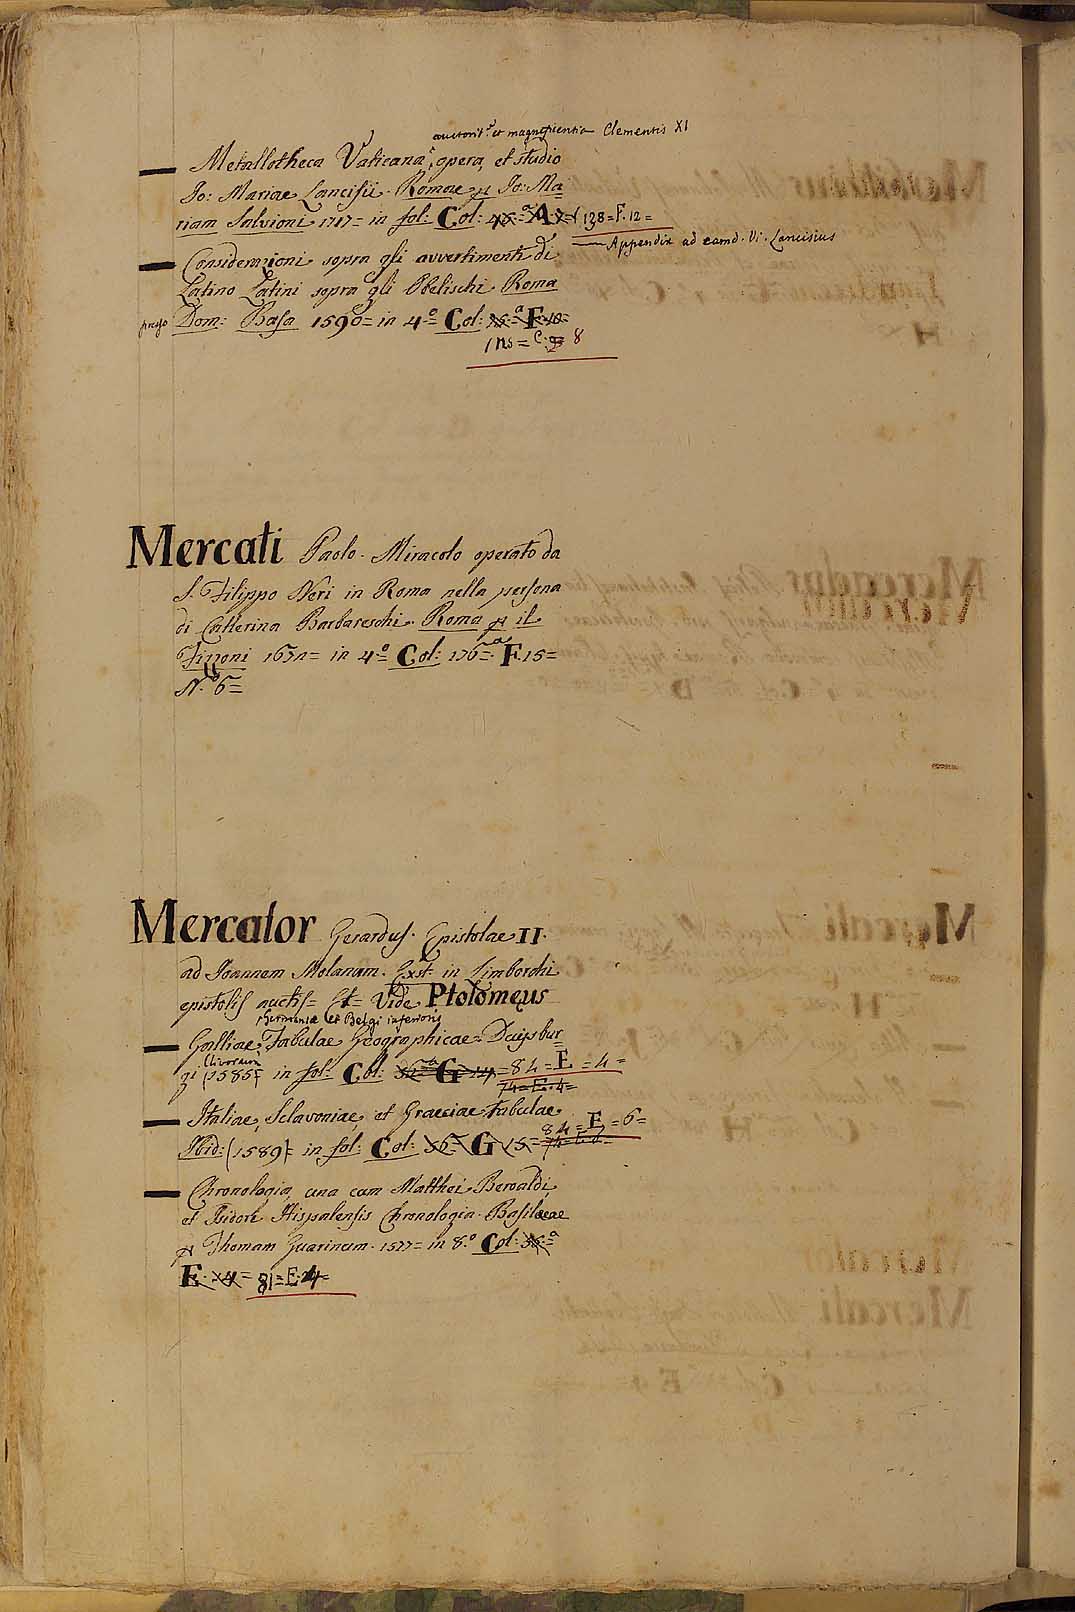 auctorit.e et magnificentia Clementis XI
— Metallotheca Vaticana, opera, et studio
Jo: Mariae Lancisii. Romae Jo: Ma
riam Salvioni 1717= in fol: Col: A 138=F.12=
— Appendix ad eamd. Vi. Lancisius
— Considerazioni sopra gli avvertimenti di
Latino Latini sopra gli Obelischi Roma
presso Dom: Basa 1590= in 4.o Col: F.
115= C. 8
Mercati Paolo. Miracolo operato da
S. Filippo Neri in Roma nella persona
di Catterina Barbareschi. Roma il
Tizzoni in 4.o Col: 176=a F.15=
N.o 6=
Mercator Gerardus. Epistolae II.
ad Joannem Molanum. Exst: in Limborchi
epistolis Vide Ptolomeus
Germaniae et Belgi inferioris
— Galliae, Tabulae Geographicae= Duysbur
Clivorum
gi (1585= in fol: Col: G 84=E=4=
74=E.4=
— Italiae, Sclavoniae, et Graeciae Tabulae
Ibid: (1589)= in fol: Col: G 15= 84=E=6=
— Chronologia, una cum Matthei Beroaldi,
et Isidori Hispalensis Chronologia. Basileae
Thomam Guarinum. 1577= in 8.o Col:
E. 81=E.4=